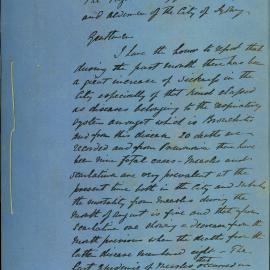 and aldermen of the City of Sydney
Gentlemen
I have the honor to report that
during the past month there has been
a great increase of sickness in the
City especially of that kind classed
as diseases belonging to the respiratory
system amongst which is Bronchitis
and from this disease 20 deaths are
recorded and from Pneumonia there have
been nine fatal cases - Measles and
scarlatina are very prevalent at the
present time both in the City and Suburbs
the mortality from measles during the
month of August is five and that from
scarlatina one showing a decrease from the
month previous when the deaths from the
latter disease numbered eight - The
last epidemic of measles that occurred in